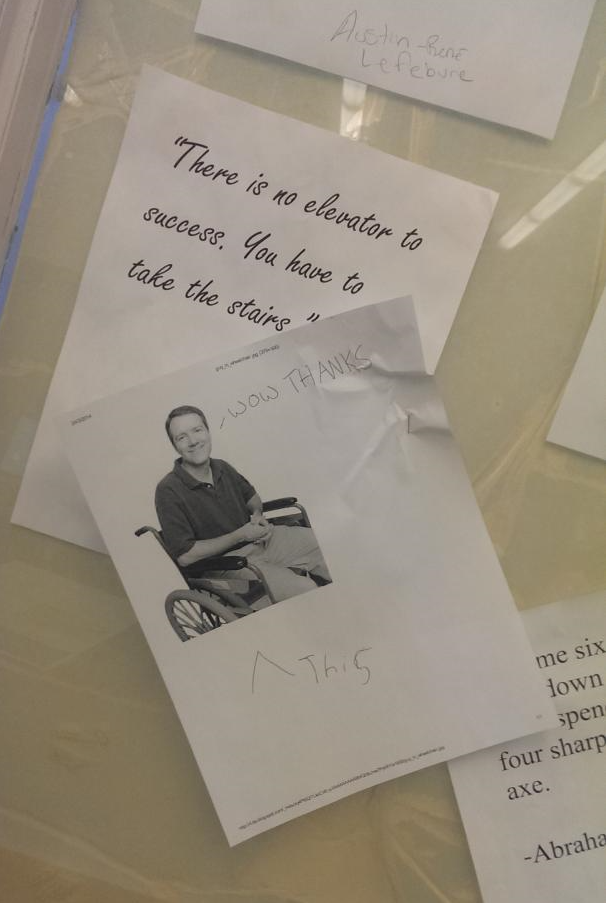 Austin-René
Lefebure
"There is no elevator to
success. You have to
take the stairs."
WOW THANKS
^ This
me six
down
spen
four sharp
axe.
-Abraha